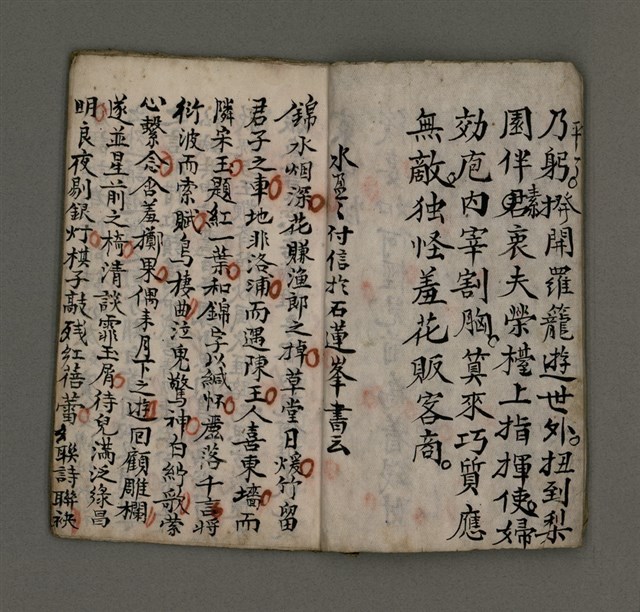 平了
乃躬撥開羅籠遊世外扭到梨
園伴君素衷夫榮檯上指揮使婦
効庖內宰割胸算來巧質應
無敵独怪羞花販客商
水蓮之付信於石蓮峯書云
錦水烟深花賺漁郎之掉草堂日煖竹留
君子之車地非洛浦而遇陳王人喜東墻而
隣宋玉題紅一葉和錦字以緘怀灑落千言將
衍波而索賦烏棲曲泣鬼驚神白紵歌蒙
心繫念含羞擲果偶来月下之遊回顧雕欄
遂並星前之椅清談霏玉屑待兒滿泛綠昌
明良夜剔銀灯棋子敲残紅蓓蕾聯詩聯袂